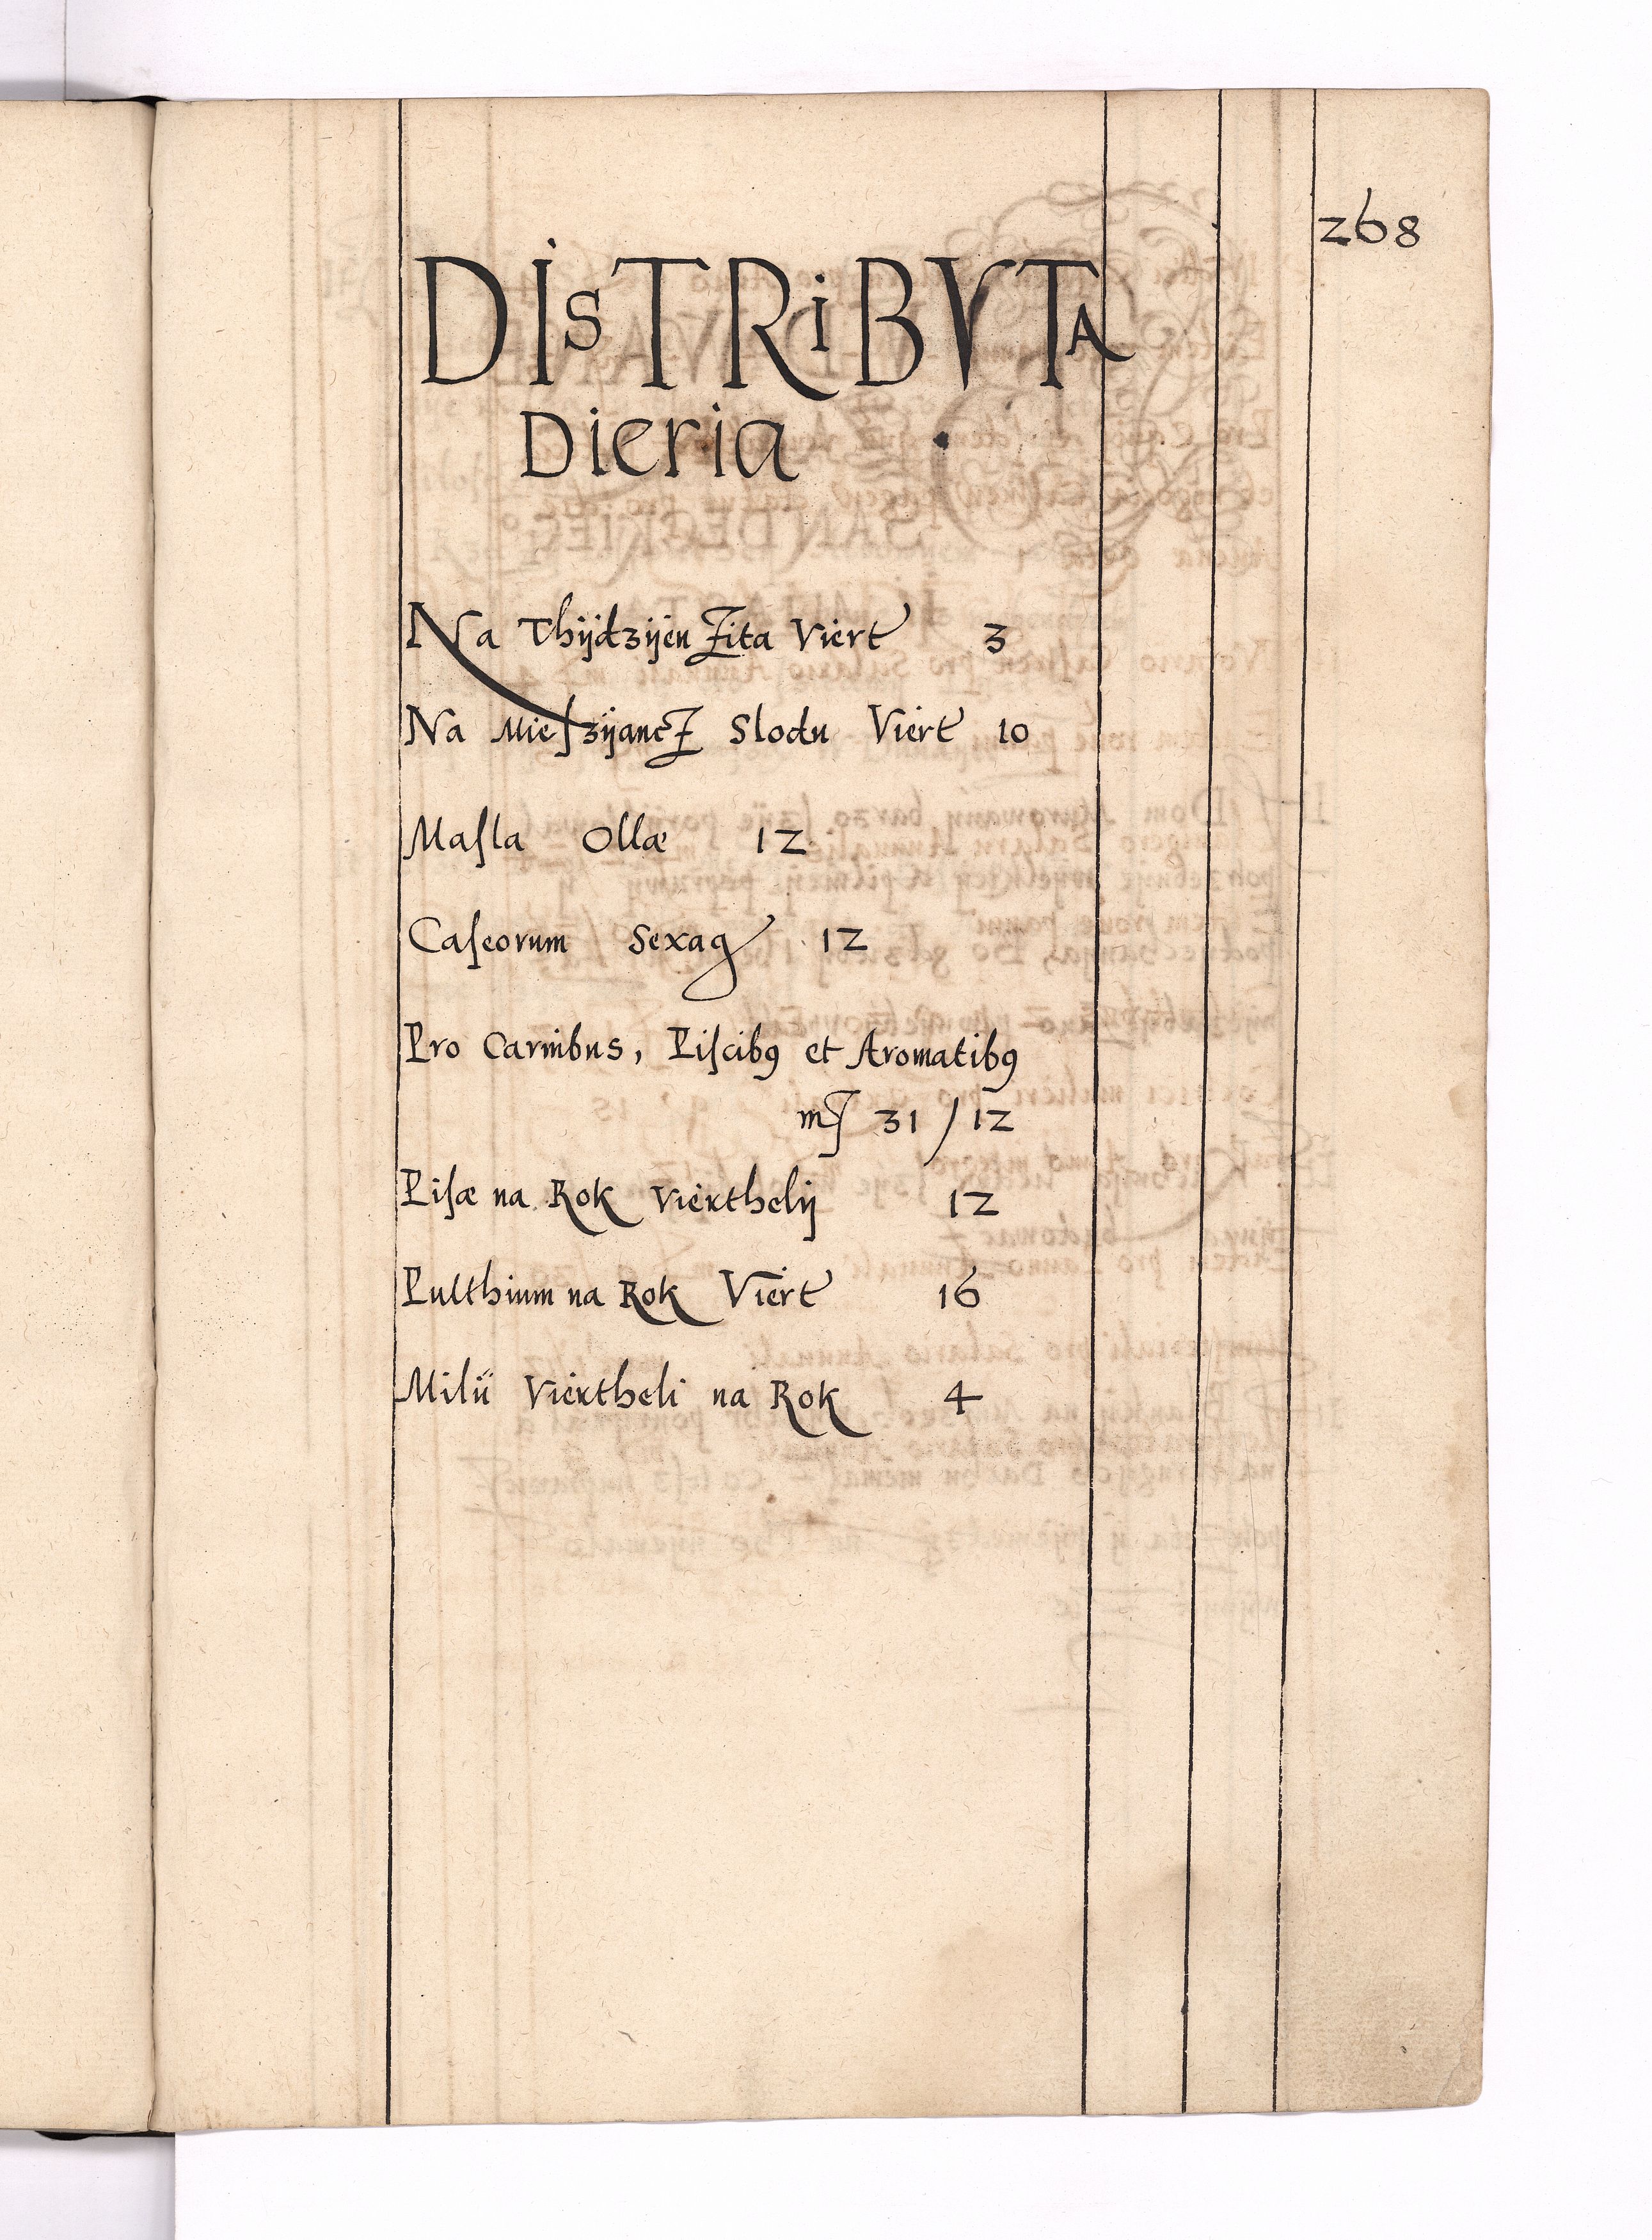 268
DISTRIBVTA
Dieria
Na Thÿdzÿen Zita Viert 3
Na Mieſzÿancz Slodu Viert 10
Maſla Ollæ 12
Caſeorum Sexag 12
Pro Carnibus, Piſcibꝯ et Aromatibꝯ
mͬ 31 / 12
Piſæ na Rok Vierthelÿ 12
Pulthium na Rok Viert 16
Milÿ Viertheli na Rok 4